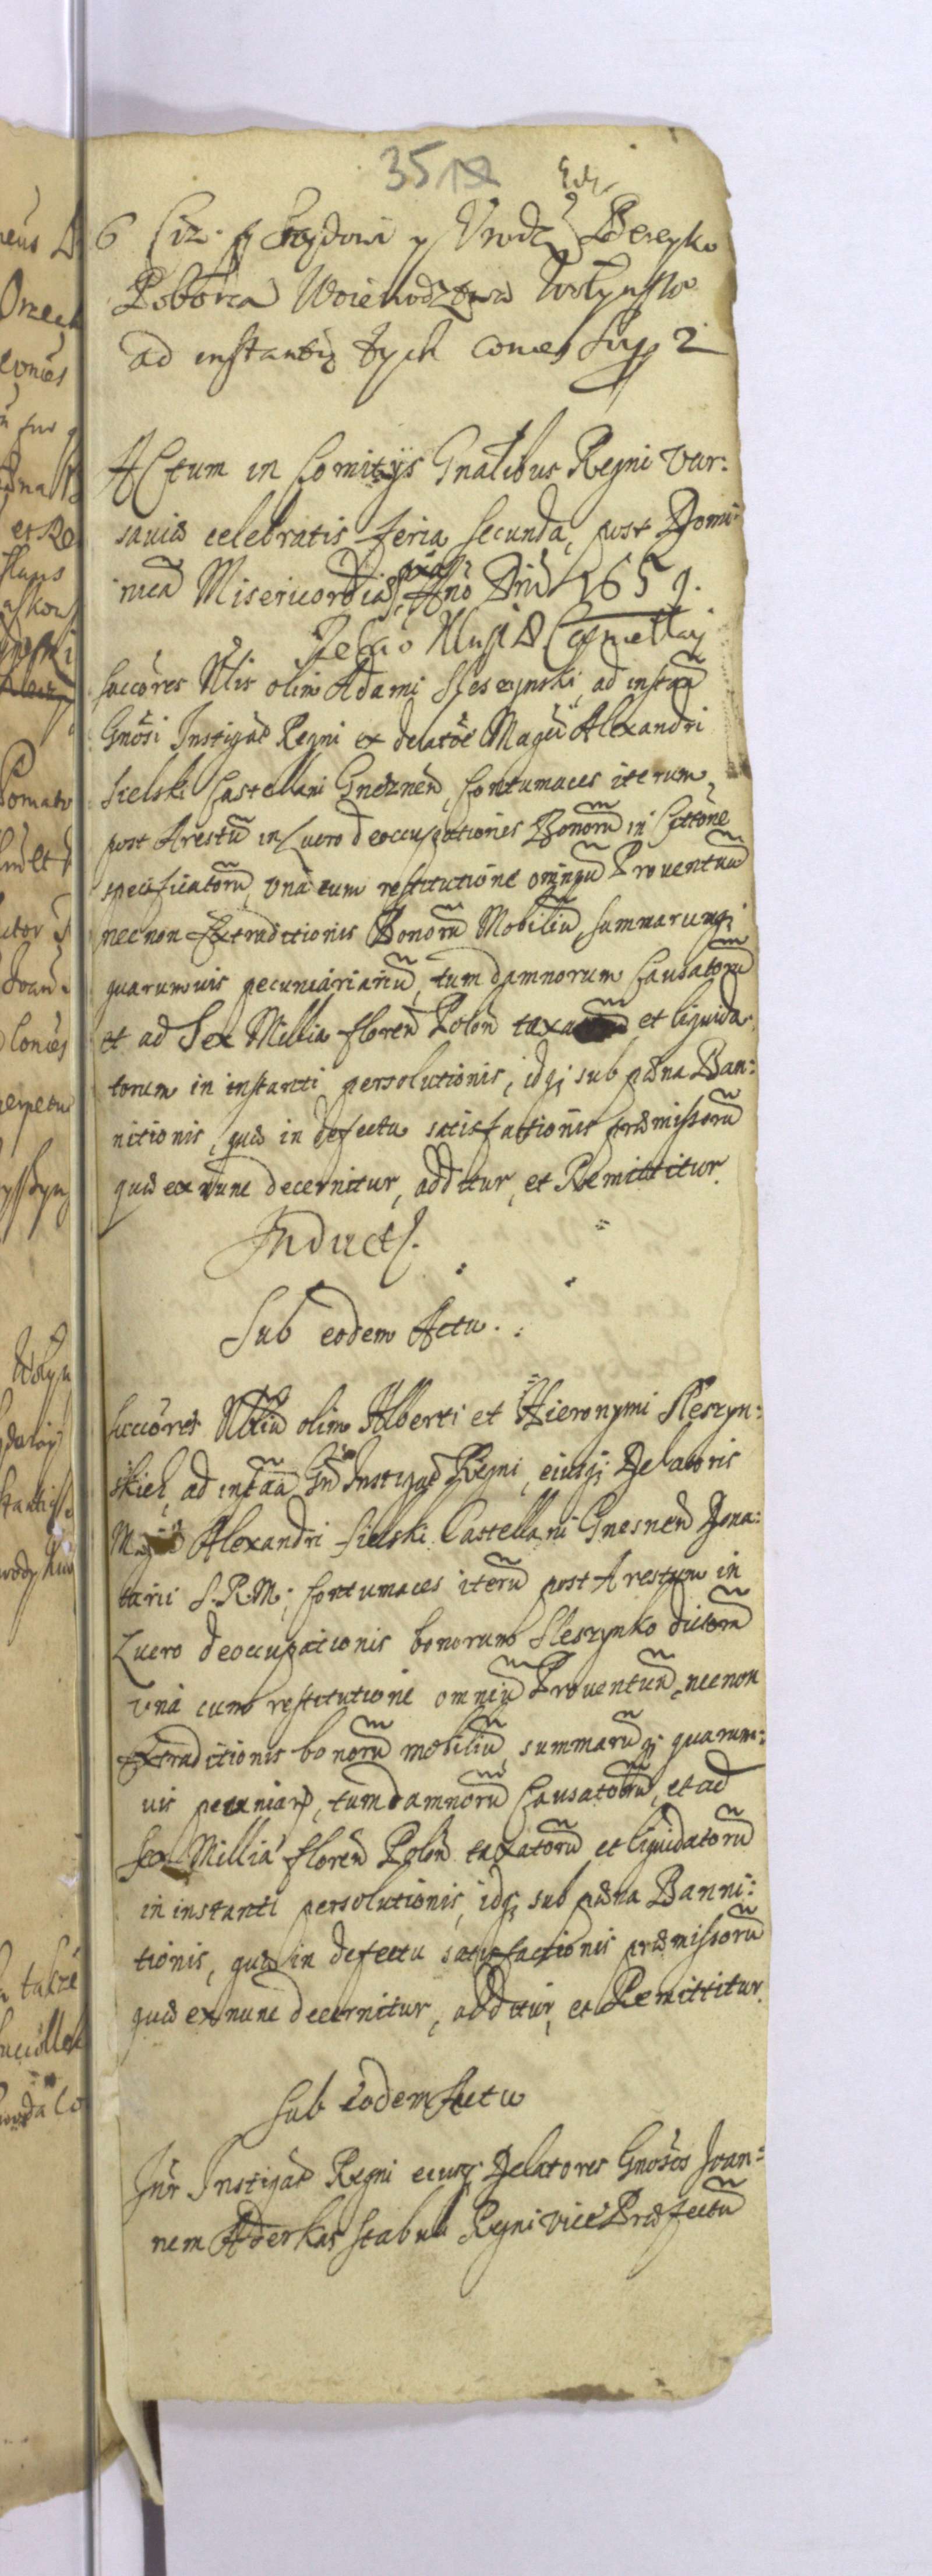 35
6 Ciż y Urodz Berezko
Poborca Woiewodztwa Wołynsk
ad instantią tych
Actum in Comitijs Gnãlibus Regni Var:
saviæ celebratis feria secunda, post Domi:
nicã Misericordiæ, pxã Año Dnĩ 1659.
Succõres Nlis olim Adami Slesczynski, ad instañ
Gnõsi Instigat Regni et delatõe Magci Alexandri
Sielski Castellani Gneznen, Contumaces iterum,
post Arestũ in Lucro deoccupationis Bonorũ in Citõne
specificatorũ, una cum restitutione omniũ Proventuũ
necnon Extraditionis Bonorũ Mobiliũ, summarumq;
quarumvis pecuniariarũ, tum damnorum Causatorũ
et ad Sex Millia floren Polon et liquida
torum in instanti persolutionis, idq; sub pæna Ban:
nitionis, quæ in defectu satisfactionis præmissorũ
quæ ex nunc decernitur, additur, et Remittitur.
Inducts.
Sub eodem Actu.
Succõres Nliũ olim Alberti et Hieronymi Sleszyn:
skich, ad instañ Gñ Instigat Regni, eiusq; Delatoris
Alexandri Sielski Castellani Gnesnen Dona:
tarii S.R.M; Contumaces iterũ post Arestum in
Lucro deoccupationis bonorum Sleszynko dictorũ
una cum restitutione omniũ Proventuũ, necnon
Extraditionis bonorũ mobiliũ, summarũq; quarum:
vis pecuniar, tum damnorũ Causatorũ, et ad
Sex Millia floren Polon taxatorũ et liquidatorũ
in instanti persolutionis, idq; sub pæna Banni:
tionis, quæ in defectu satisfactionis præmissorũ
quæ ex nunc decernitur, additur, et Remittitur.
Sub eodem Actu
Intr Instigat Regni eiusq; Delatores Gnosos Joan:
nem Aderkas Stabuli Regni vice Præfectũ